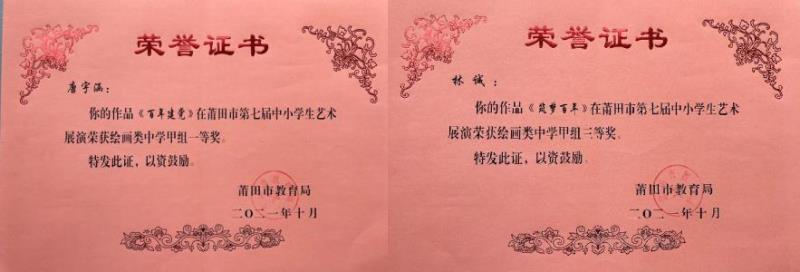 荣誉证书
唐宇涵：
你的作品《百年建党》在莆田市第七届中小学生艺术
展演荣获绘画类中学甲组一等奖。
特发此证，以资鼓励。
莆田市教育局
二〇二一年十月
荣誉证书
林诚：
你的作品《筑梦百年》在莆田市第七届中小学生艺术
展演荣获绘画类中学甲组三等奖。
特发此证，以资鼓励。
莆田市教育局
二〇二一年十月